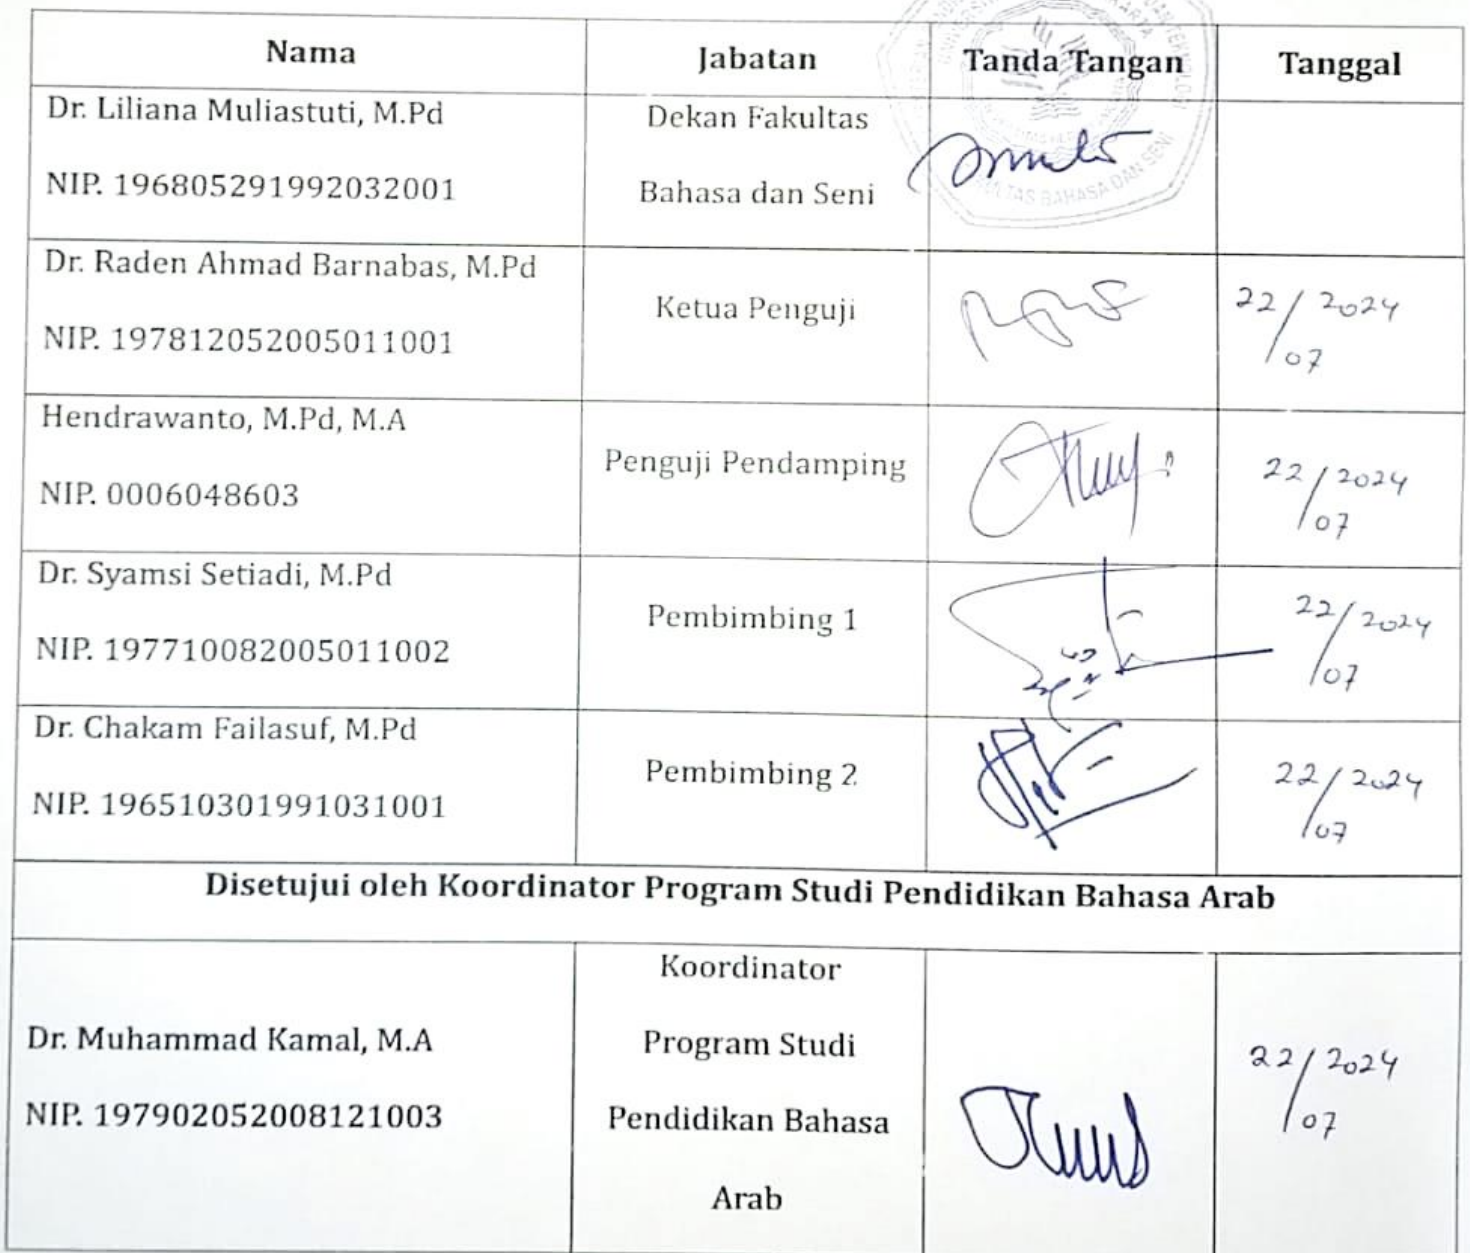 Nama Jabatan Tanda Tangan Tanggal
Dr. Liliana Muliastuti, M.Pd
NIP. 196805291992032001
Dekan Fakultas
Bahasa dan Seni
FAKULTAS BAHASA DAN SENI
Dr. Raden Ahmad Barnabas, M.Pd
NIP. 197812052005011001
Ketua Penguji
22/07 2024
Hendrawanto, M.Pd, M.A
NIP. 0006048603
Penguji Pendamping
22/07 2024
Dr. Syamsi Setiadi, M.Pd
NIP. 197710082005011002
Pembimbing 1
22/07 2024
Dr. Chakam Failasuf, M.Pd
NIP. 196510301991031001
Pembimbing 2
22/07 2024
Disetujui oleh Koordinator Program Studi Pendidikan Bahasa Arab
Dr. Muhammad Kamal, M.A
NIP. 197902052008121003
Koordinator
Program Studi
Pendidikan Bahasa
Arab
22/07 2024